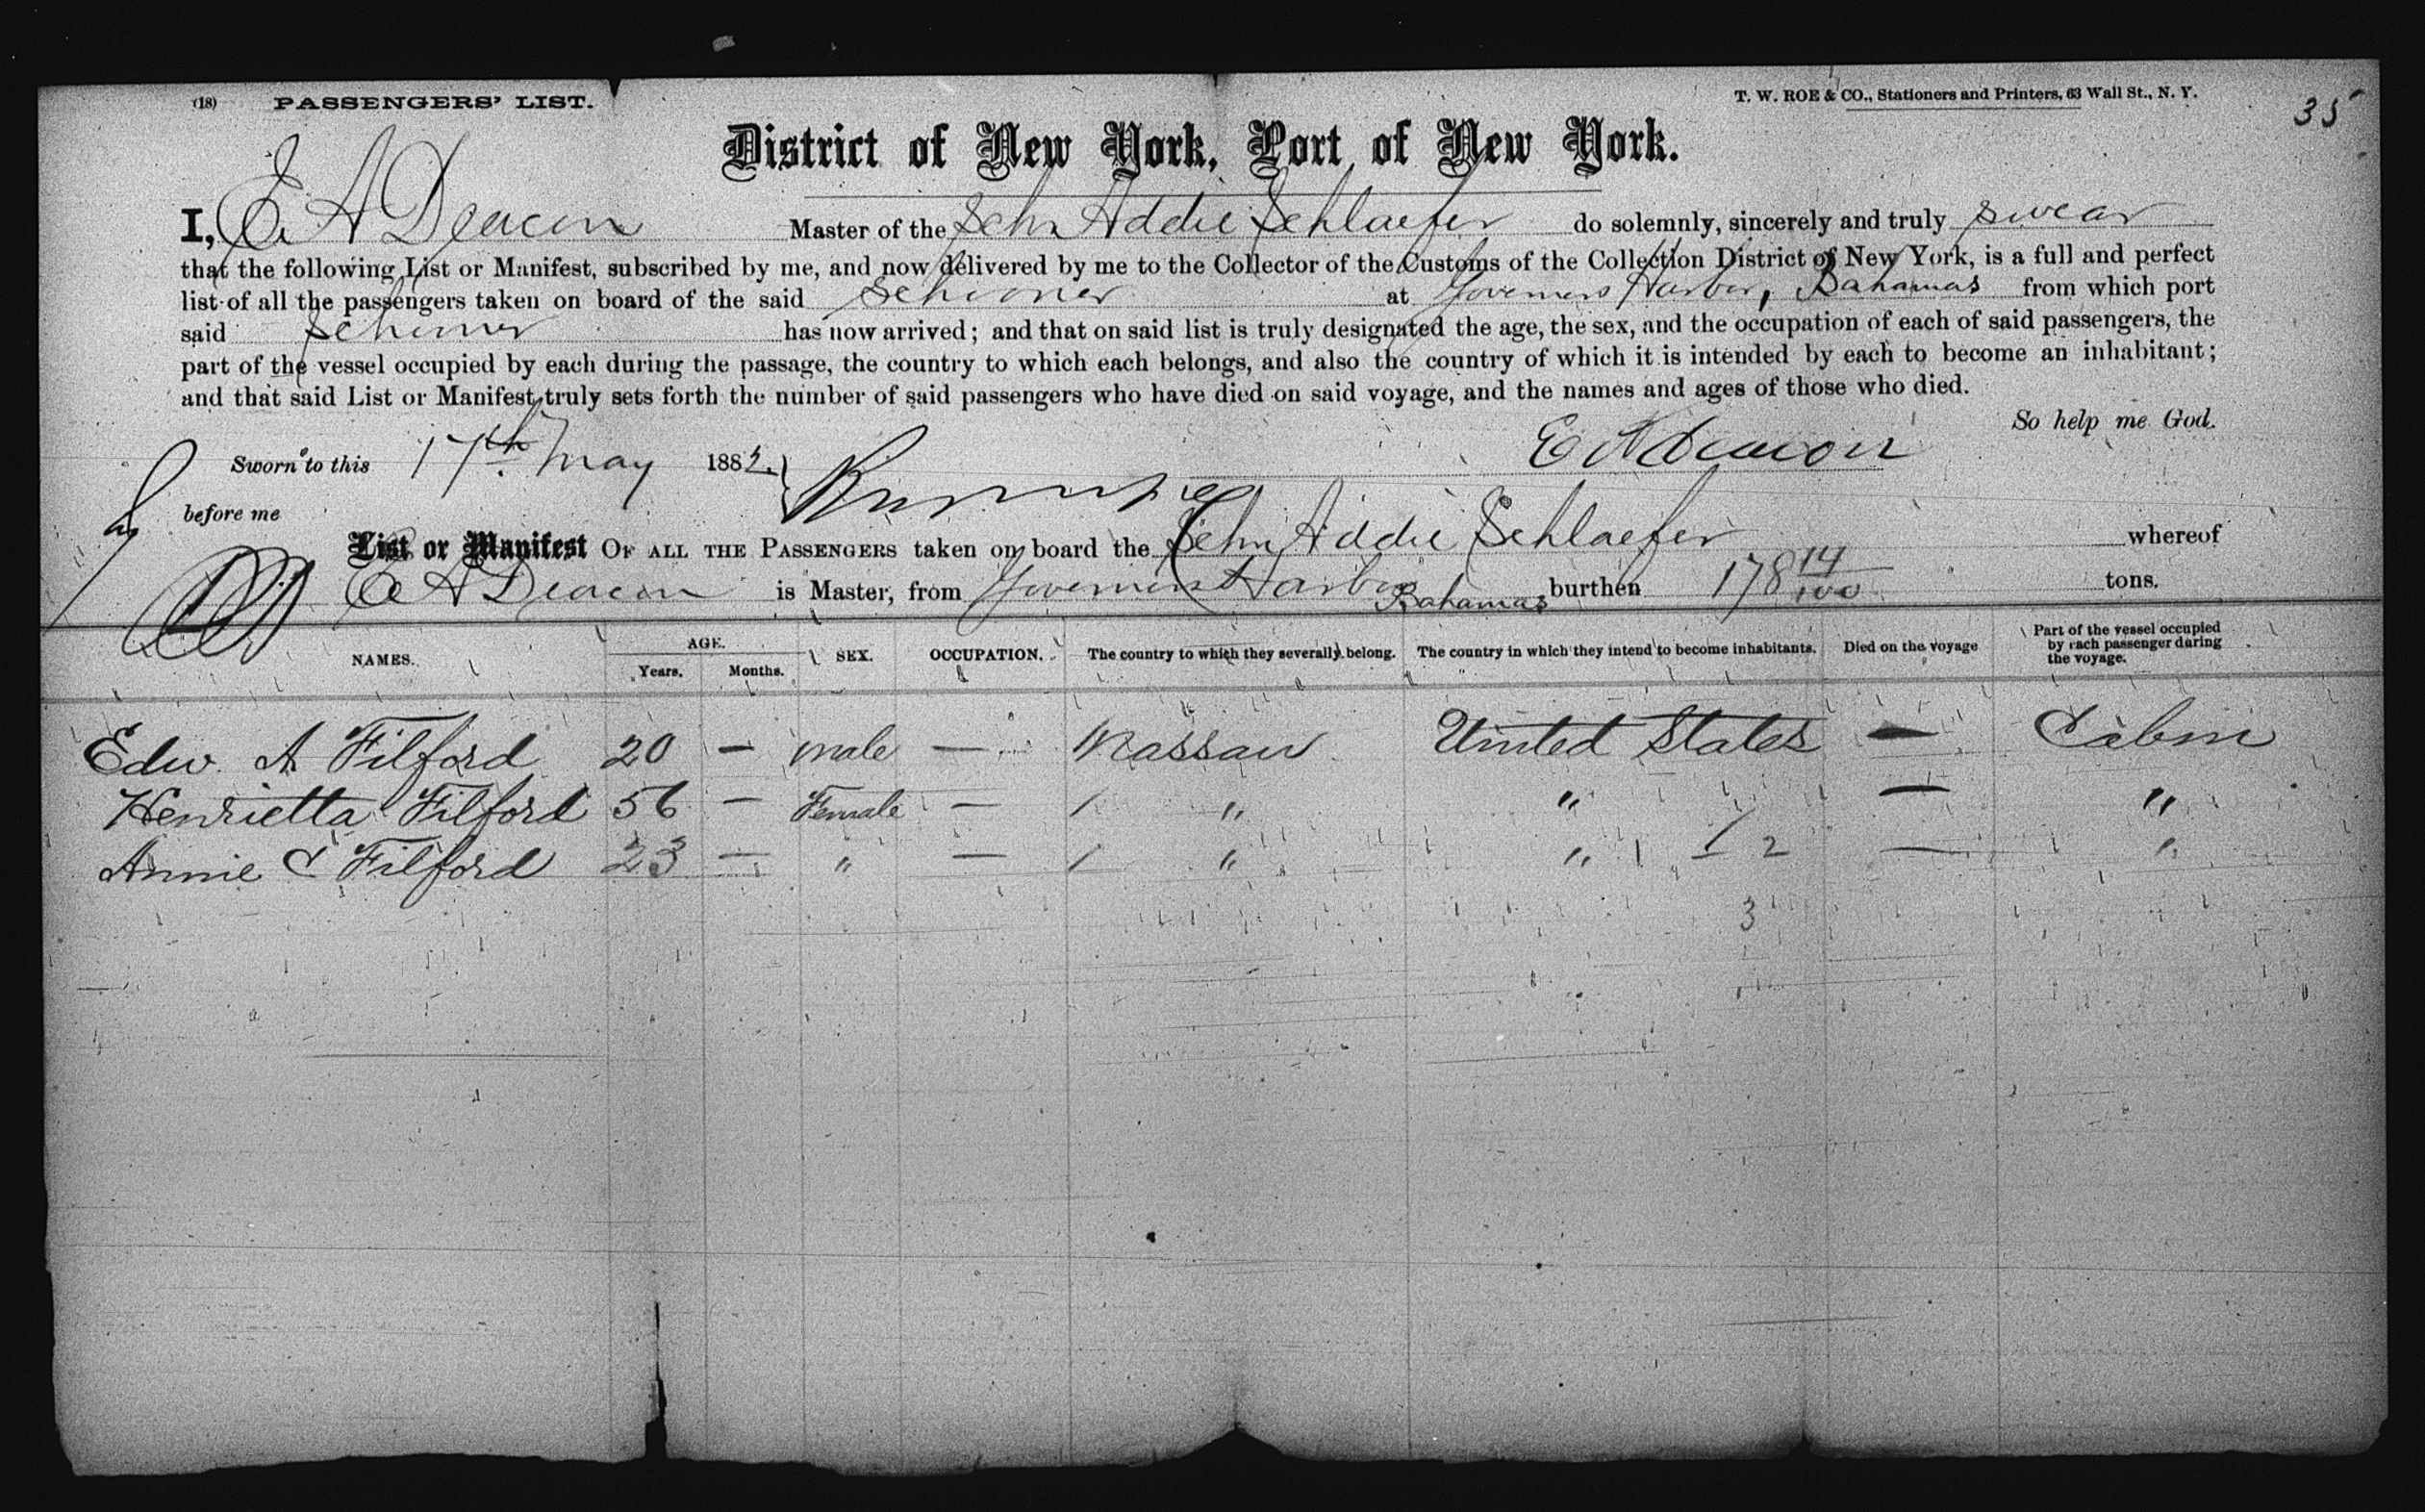 (18) PASSENGERS' LIST. T. W. ROE & CO., Stationers and Printers, 63 Wall St., N. Y. 35
District of New York, Port of New York.
I, E A Deacon Master of the Schr Addie Schlaefer do solemnly, sincerely and truly swear
that the following List or Manifest, subscribed by me, and now delivered by me to the Collector of the Customs of the Collection District of New York, is a full and perfect
list of all the passengers taken on board of the said Schooner at Governors Harbor, Bahamas from which port
said Schooner has now arrived; and that on said list is truly designated the age, the sex, and the occupation of each of said passengers, the
part of the vessel occupied by each during the passage, the country to which each belongs, and also the country of which it is intended by each to become an inhabitant;
and that said List or Manifest truly sets forth the number of said passengers who have died on said voyage, and the names and ages of those who died.
So help me God.
Sworn to this 17th May 1882. E A Deacon
before me
List or Manifest OF ALL THE PASSENGERS taken on board the Schr Addie Schlaefer whereof
E A Deacon is Master, from Governors Harbor Bahamas burthen 178 14/100 tons.
NAMES. AGE. Years. Months. SEX. OCCUPATION. The country to which they severally belong. The country in which they intend to become inhabitants. Died on the voyage Part of the vessel occupied by each passenger during the voyage.
Edw. A Filford 20 — male — Nassau United States — Cabin
Henrietta Filford 56 — Female — / " " — "
Annie C Filford 23 — " — / " " 1 2 — "
3